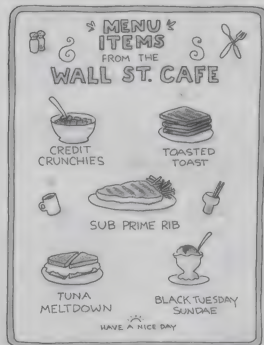 MENU
ITEMS
FROM THE
WALL ST. CAFE
CREDIT
CRUNCHIES
TOASTED
TOAST
SUB PRIME RIB
TUNA
MELTDOWN
BLACK TUESDAY
SUNDAE
HAVE A NICE DAY